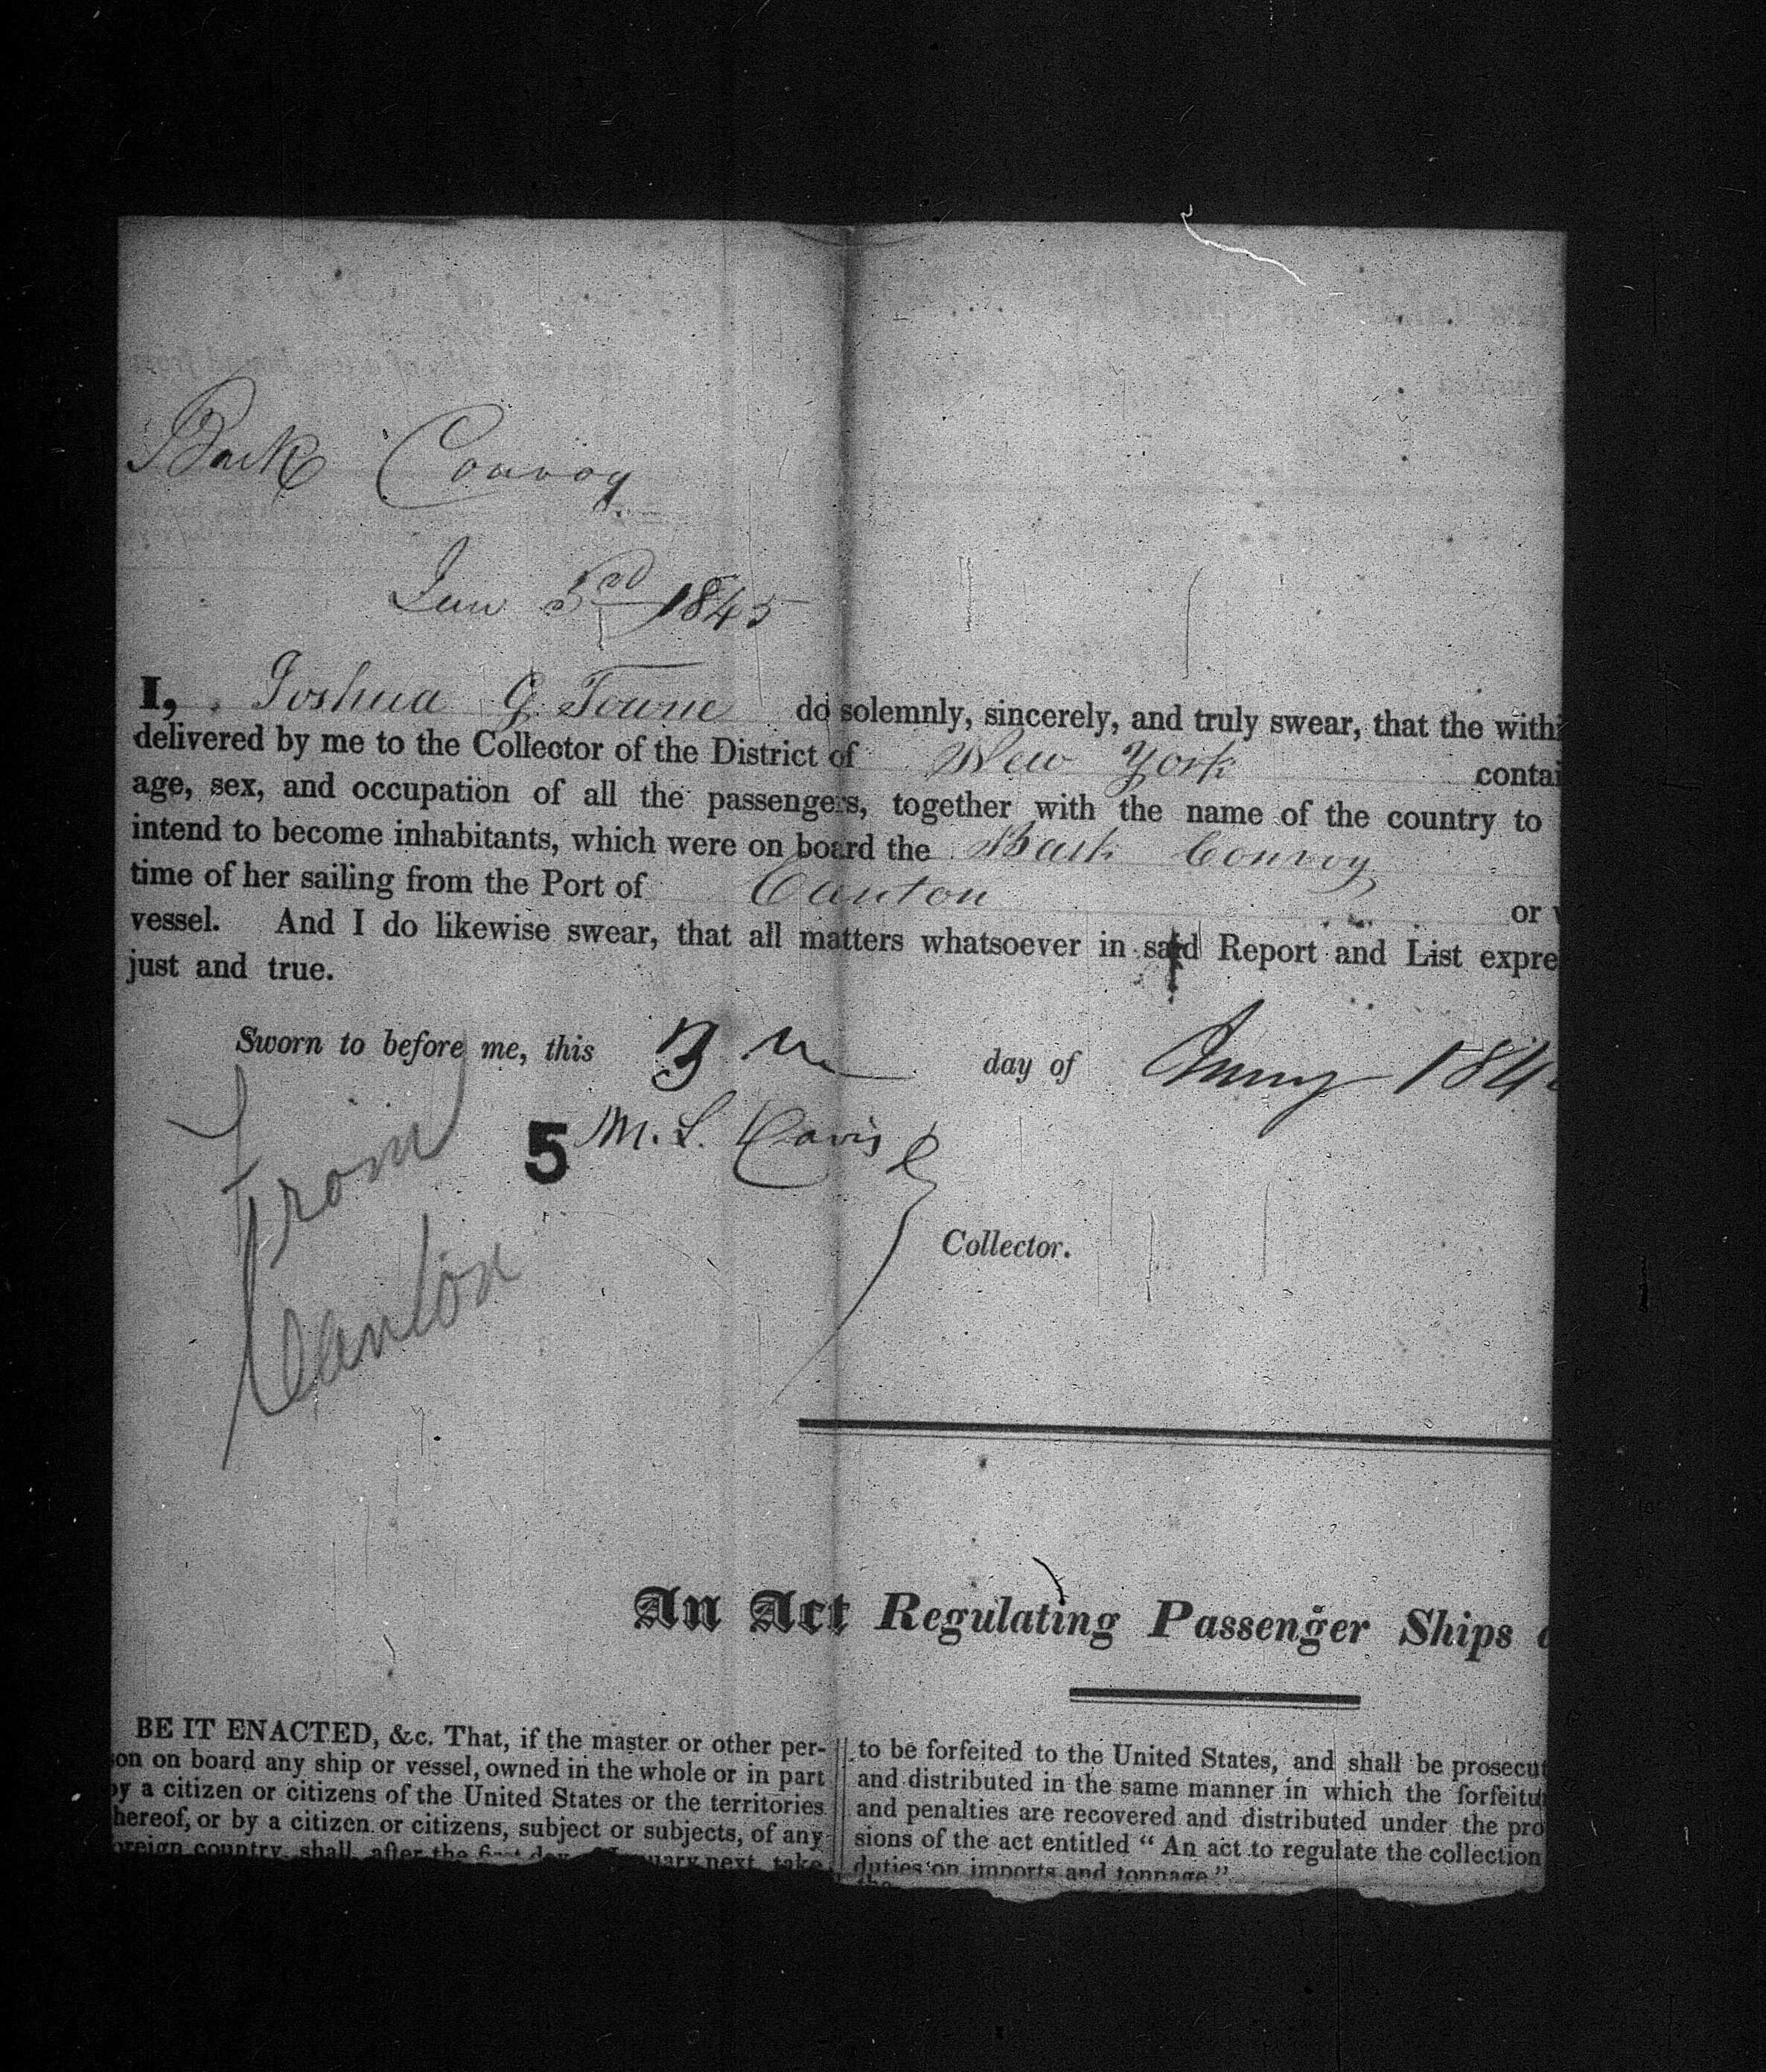 Bark Convoy
Jan 3rd 1845
I, Joshua G. Towne do solemnly, sincerely, and truly swear, that the withi
delivered by me to the Collector of the District of New York contai
age, sex, and occupation of all the passengers, together with the name of the country to
intend to become inhabitants, which were on board the Bark Convoy
time of her sailing from the Port of Canton or
vessel. And I do likewise swear, that all matters whatsoever in said Report and List expre
just and true.
Sworn to before me, this 3 day of 184
5 M. L. Davis
From
Canton
Collector.
An Act Regulating Passenger Ships
BE IT ENACTED, &c. That, if the master or other per-
son on board any ship or vessel, owned in the whole or in part
by a citizen or citizens of the United States or the territories
hereof, or by a citizen or citizens, subject or subjects, of any
oreign country, shall, after the first day January next, take
to be forfeited to the United States, and shall be prosecut
and distributed in the same manner in which the forfeitu
and penalties are recovered and distributed under the pro
sions of the act entitled "An act to regulate the collection
duties on imports and tonnage."
the